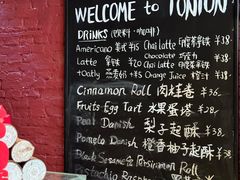 WELCOME to TONTON
DRINKS (饮料)
Americano 美式 ¥15 Chai Latte 印度茶拿铁 ¥38
Latte 拿铁 Chocolate 巧克力 ¥38.
+Oatly 燕麦奶 +¥5 Orange Juice 橙汁 ¥38.
Cinnamon Roll 肉桂卷 ¥36.
Fruits Egg Tart 水果蛋塔 ¥28.
Pear Danish 梨子起酥 ¥38.
Pomelo Danish 橙香柚子起酥 ¥38.
Black Sesame Persimmon Roll
Pistachio Raspberry